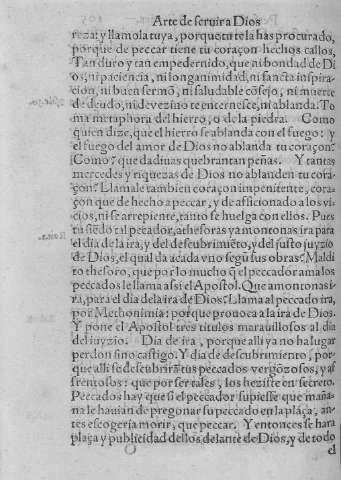 Arte de seruir a Dios
reza: y llamola tuya, porque tu te la has procurado,
porque de peccar tiene tu coraçon hechos callos,
Tan duro y tan empedernido, que ni bondad de Di
os, ni paciencia, ni longanimidad, ni sancta inspira-
cion, ni buen sermõ, ni saludable cõsejo, ni muerte
de deudo, ni de vezino te enternesce, ni ablanda: To
ma metaphora del hierro, o de la piedra. Como
quien dize, que el hierro se ablanda con el fuego: y
el fuego del amor de Dios no ablanda tu coraçon?
Como? que dadiuas quebrantan peñas. Y tantas
mercedes y riquezas de Dios no ablanden tu cora-
çon? Llamale tambien coraçon impenitente, cora-
çon que de hecho a peccar, y de afficionado a los vi-
cios, ni se arrepiente, tanto se huelga con ellos. Pues
tu siẽdo tal pecador, athesoras y amontonas ira para
el dia de la ira, y del descubrimiẽto, y del justo juyzio
de Dios, el qual da a cada vno segũ sus obras? Maldi
to thesoro, que por lo mucho q̃ el peccador ama los
peccados le llama assi el Apostol. Que amontonas i-
ra, para el dia de la ira de Dios? Llama al peccado ira,
por Methonimia: porque prouoca a la ira de Dios.
Y pone el Apostol tres titulos marauillosos al dia
del iuyzio. Dia de ira, porque alli ya no ha lugar
perdon sino castigo. Y dia de descubrimiento, por-
que alli se descubrirã tus peccados vergõzosos, y af
frentosos: que por ser tales, los heziste en secreto.
Peccados hay que si el peccador supiesse que maña-
na le hauian de pregonar su peccado en la plaça, an-
tes escogeria morir, que peccar. Y entonces se hara
plaça y publicidad dellos delante de Dios, y de todo
el